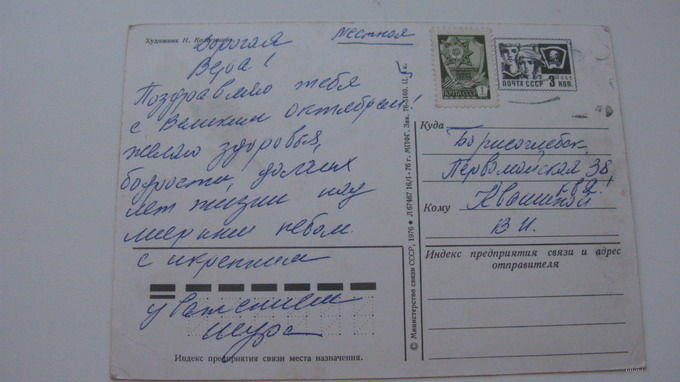 Художник Н.
Местная
Дорогая
Вера!
Поздравляю тебя
с Великим Октябрём!
желаю здоровья,
бодрости, долгих
лет жизни под
мирным небом.
с искренним
уважением
Шура
Индекс предприятия связи места назначения.
© Министерство связи СССР, 1976 ● Л 67467 16/1-76 г. МПФГ. Зак. Ц.
1
ПОЧТА СССР 3 КОП.
Куда
Борисоглебск,
Первомайская 38,
кв
Кому Квашиной
В. И.
Индекс предприятия связи и адрес
отправителя